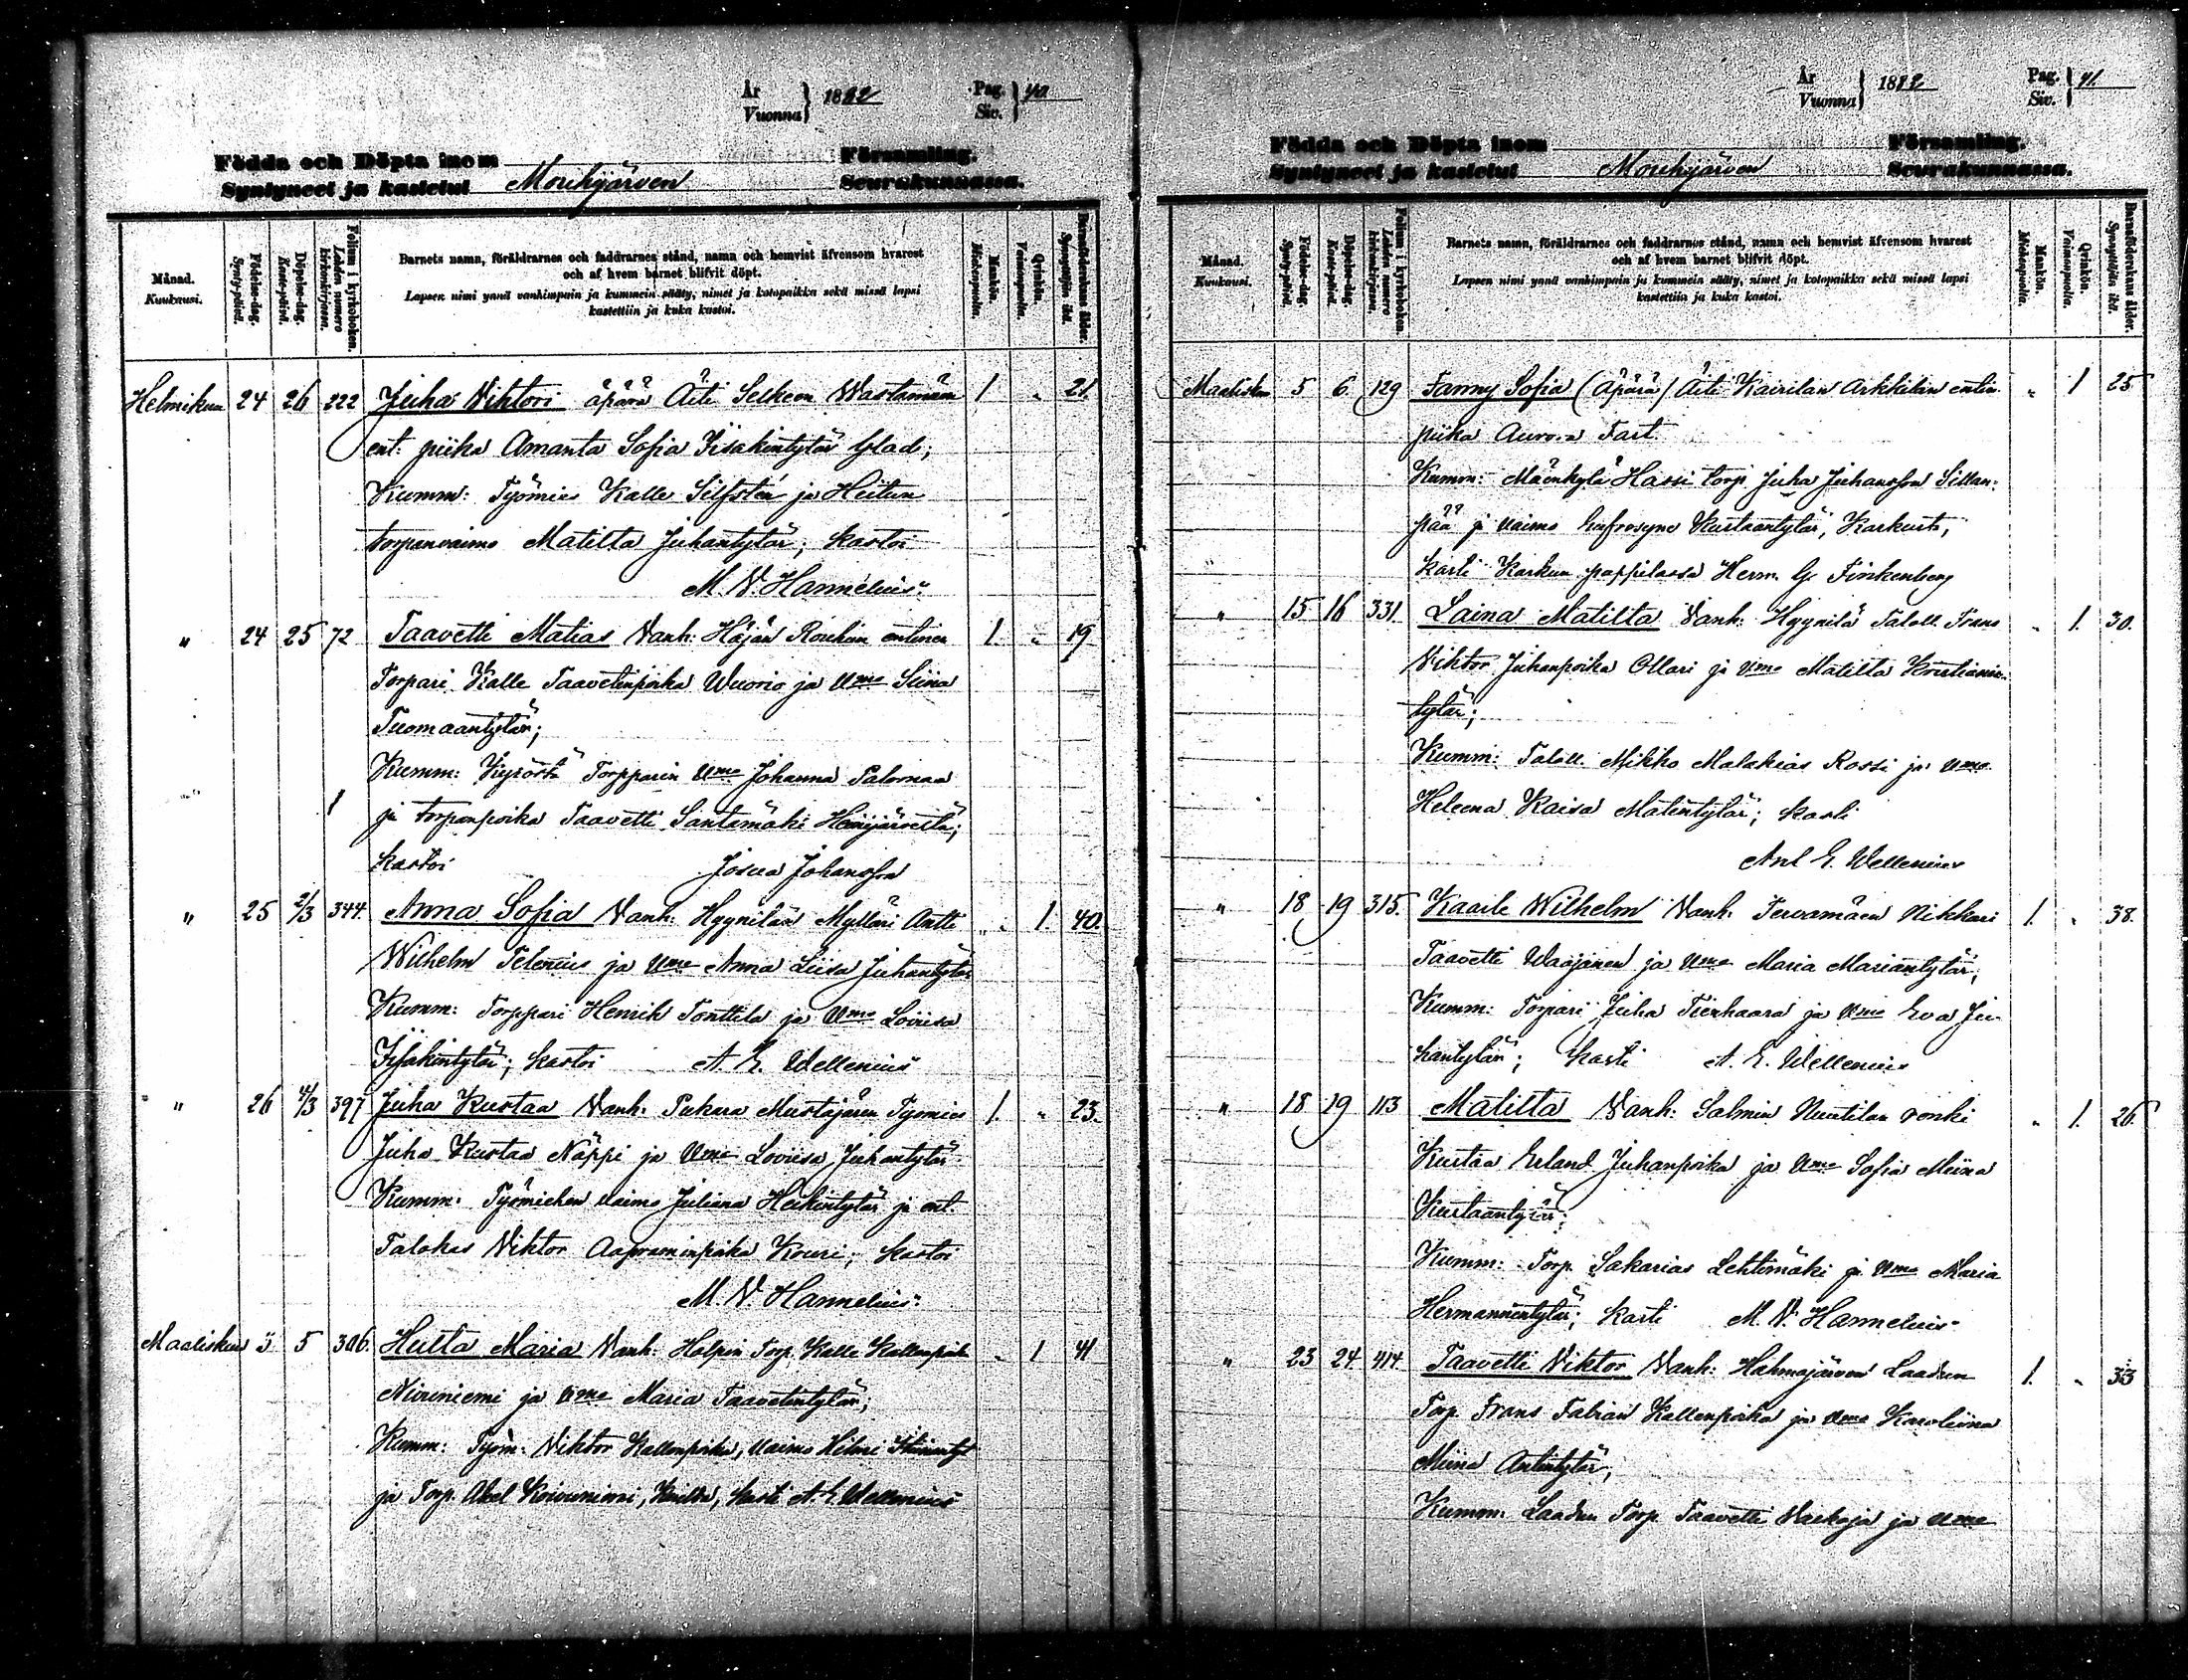 År
Vuonna } 1882
Pag.
Siv. } 40
Födda och Döpta inom Församling.
Syntyneet ja kastetut Mouhijärven Seurakunnassa.
Månad.
Kuukausi.
Födelse-dag.
Synty-päivä.
Döpelse-dag.
Kaste-päivä.
Folium i kyrkoboken.
Lehden numero kirkonkirjassa.
Barnets namn, föräldrarnes och faddrarnes stånd, namn och hemvist äfvensom hvarest
och af hvem barnet blifvit döpt.
Lapsen nimi ynnä vanhimpain ja kummein sääty, nimet ja kotopaikka sekä missä lapsi
kastettiin ja kuka kastoi.
Mankön.
Miehenpuolia.
Qvinkön.
Vaimonpuolia.
Barnaföderskans ålder.
Synnyttäjän ikä.
Helmikuu 24 26 222 Juha Vihtori äpärä Äiti Selkeen Wastamäen 1 " 21.
ent. piika Amanta Sofia Iisakintytär Glad;
Kumm: Työmies Kalle Silfstén ja Heitun
torpanvaimo Matilta Juhantytär; kastoi
M. V. Hannelius.
" 24 25 72 Taavetti Matias Vanh: Häjän Rouhun entinen 1. " 19
Torpari Kalle Taavetinpoika Wuorio ja Vmo Siina
Tuomaantytär;
Kumm: Kyröstä Torpparin Vmo Johanna Palomaa
ja torpanpoika Taavetti Santamäki Heinijärveltä;
kastoi Josua Johansson
" 25 2/3 344. Anna Sofia Vanh: Hyynilän Mylläri Antti " 1. 40.
Wilhelm Telenius ja Vmo Anna Liisa Juhantytär
Kumm: Torppari Henrik Tonttila ja Vmo Loviisa
Iisakintytär; kastoi A. E. Wellenius
" 26 4/3 397 Juha Kustaa Vanh: Pukara Mustajären Työmies 1. " 23.
Juha Kustaa Näppi ja Vmo Loviisa Juhantytär
Kumm: Työmiehen vaimo Juliana Heikintytär ja ent.
Talokas Viktor Aapraminpoika Kouri; kastoi
M. V. Hannelius.
Maaliskuu 3 5 306. Hulta Maria Vanh: Halpin Torp. Kalle Kallenpoik " 1 41
Niruniemi ja Vmo Maria Taavetintytär;
Kumm: Työm: Viktor Kallenpoika, vaimo Hilmi
ja Torp. Abel Koivuniemi, kasti A. E. Wellenius
År
Vuonna } 1882
Pag.
Siv. } 41.
Födda och Döpta inom Församling.
Syntyneet ja kastetut Mouhijärven Seurakunnassa.
Månad.
Kuukausi.
Födelse-dag.
Synty-päivä.
Döpelse-dag.
Kaste-päivä.
Folium i kyrkoboken.
Lehden numero kirkonkirjassa.
Barnets namn, föräldrarnes och faddrarnes stånd, namn och hemvist äfvensom hvarest
och af hvem barnet blifvit döpt.
Lapsen nimi ynnä vanhimpain ja kummein sääty, nimet ja kotopaikka sekä missä lapsi
kastettiin ja kuka kastoi.
Mankön.
Miehenpuolia.
Qvinkön.
Vaimonpuolia.
Barnaföderskans ålder.
Synnyttäjän ikä.
Maalisku 5 6 129 Fanny Sofia (Äpärä) Äiti Kairilan Arkkilan entin. " 1 25
piika Aurora Fast.
Kumm: Mäenkylä Hassi torp. Juha Juhansson Sillan-
pää ja vaimo Eufrosyne Kustaantytär, Karkusta,
kasti Karkun pappilassa Herm. G. Finkenberg
" 15 16 331. Laina Matilta Vanh: Hyynilä Taloll. Frans " 1. 30.
Viktor Juhanpoika Ollari ja Vmo Matilta Kristianin-
tytär;
Kumm: Taloll. Mikko Malakias Rossi ja Vmo
Heleena Kaisa Matintytär; kasti
Ant E. Wellenius
" 18 19 315. Kaarle Wilhelm Vanh: Tervamäen Nikkari 1. " 38.
Taavetti Waajanen ja Vmo Maria Mariantytär,
Kumm: Torpari Juha Tienhaara ja Vmo Eva Ju-
hantytär; kasti A. E. Wellenius
" 18 19 113 Matilta Vanh: Salmin Nuutilan renki " 1. 26
Kustaa Erland Juhanpoika ja Vmo Sofia Miina
Kustaantytär;
Kumm: Torp. Sakarias Lehtimäki ja Vmo Maria
Hermannintytär; kasti M. V. Hannelius
" 23 24. 414. Taavetti Viktor Vanh: Hahmajärven Laadun 1. " 33
Torp. Frans Fabian Kallenpoika ja Vmo Karoliina
Miina Antintytär;
Kumm: Laadun Torp. Taavetti Vaekoja ja Vmo